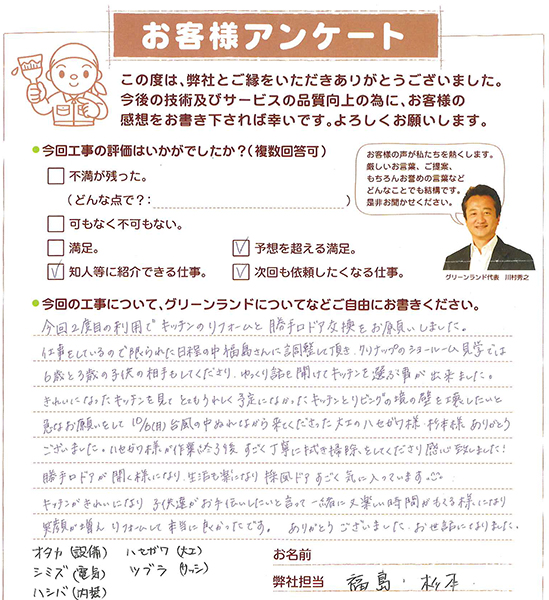 お客様アンケート
この度は、弊社とご縁をいただきありがとうございました。
今後の技術及びサービスの品質向上の為に、お客様の
感想をお書き下されば幸いです。よろしくお願いします。
●今回工事の評価はいかがでしたか?(複数回答可)
不満が残った。
(どんな点で?: )
可もなく不可もない。
満足。
予想を超える満足。
知人等に紹介できる仕事。
次回も依頼したくなる仕事。
お客様の声が私たちを熱くします。
厳しいお言葉、ご提案、
もちろんお誉めの言葉など
どんなことでも結構です。
是非お聞かせください。
グリーンランド代表 川村秀之
●今回の工事について、グリーンランドについてなどご自由にお書きください。
今回2度目の利用でキッチンのリフォームと勝手口ドア交換をお願いしました。
仕事をしているので限られた日程の中福島さんに調整して頂き、クリナップのショールーム見学では
6歳と3歳の子供の相手もしてくださり、ゆっくり話を聞けてキッチンを選ぶ事が出来ました。
きれいになったキッチンを見て とてもうれしく予定になかったキッチンとリビングの境の壁を壊したいと
急なお願いをして10/6(月)台風の中ぬれながら来てくださった大工のハセガワ様・杉本様 ありがとう
ございました。ハセガワ様が作業終了後 すごく丁寧に拭き掃除をしてくださり感心致しました!
勝手口ドアが開く様になり、生活も楽になり 採風ドアすごく気に入っています
キッチンがきれいになり 子供達がお手伝いしたいと言って一緒に 楽しい時間がもてる様になり
笑顔が増え リフォームして本当に良かったです。 ありがとうございました。お世話になりました。
オタカ(設備) ハセガワ(大工)
シミズ(電気) ツブラ(サッシ)
ハシバ(内装)
お名前
弊社担当 福島・杉本